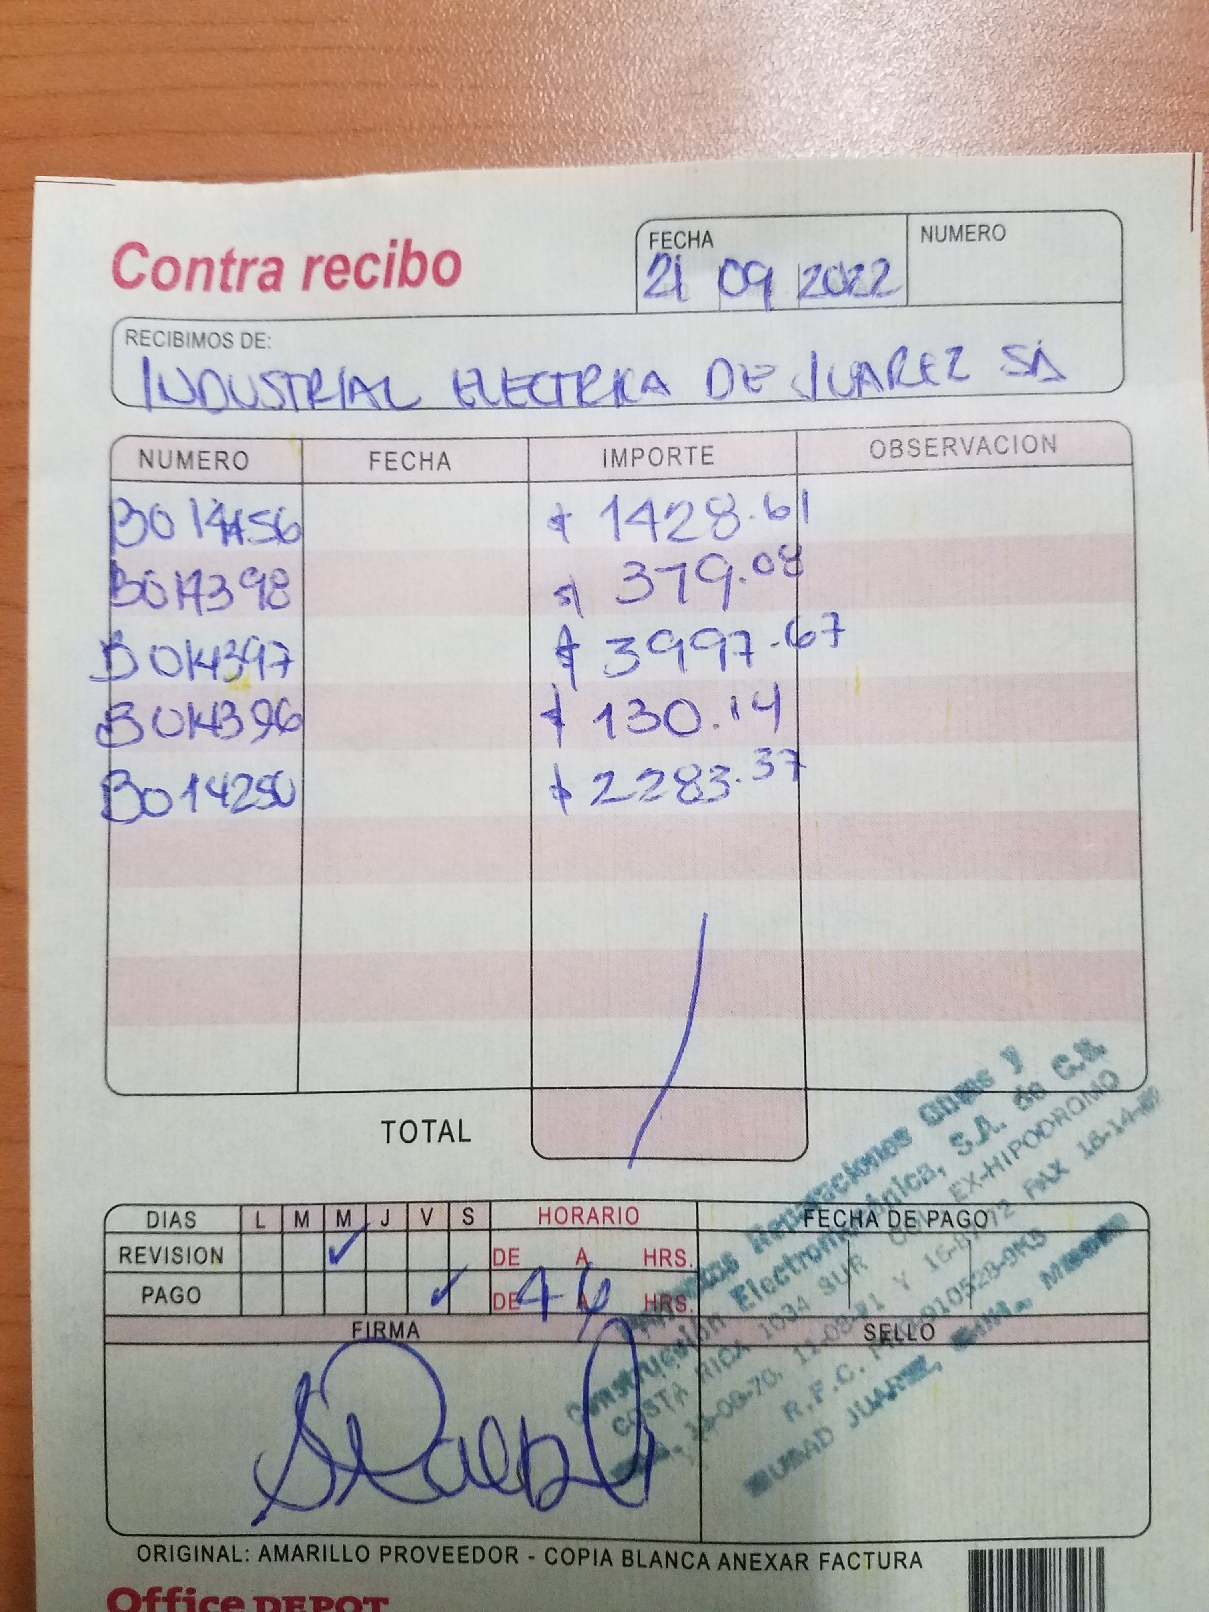 Contra recibo
FECHA
21 09 2022
NUMERO
RECIBIMOS DE:
INDUSTRIAL ELECTRICA DE JUAREZ SA
NUMERO FECHA IMPORTE OBSERVACION
B014456 $ 1428.61
B014398 $ 379.08
B014397 $ 3997.67
B014396 $ 130.14
B014250 $ 2283.37
TOTAL
DIAS L M M J V S HORARIO FECHA DE PAGO
REVISION ✓ DE A HRS.
PAGO ✓ DE 4 A 6 HRS.
FIRMA SELLO
Reparaciones Obras y
Construcción Electromecánica, S.A. de C.V.
COSTA RICA 1034 SUR EX-HIPODROMO
FAX
R.F.C.
CIUDAD JUAREZ,
ORIGINAL: AMARILLO PROVEEDOR - COPIA BLANCA ANEXAR FACTURA
Office DEPOT